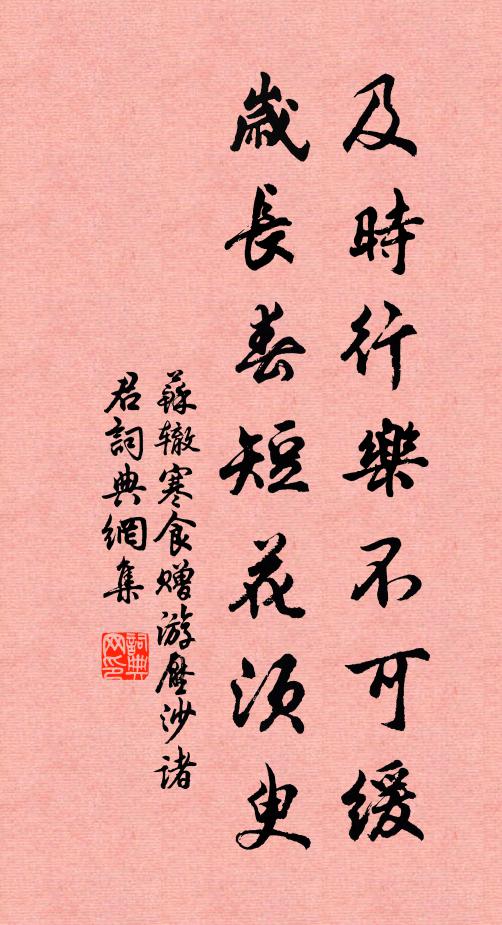 及時行樂不可緩
歲長春短花須臾
蘇辙寒食贈游壓沙諸
君詞典網集
詞典
网印